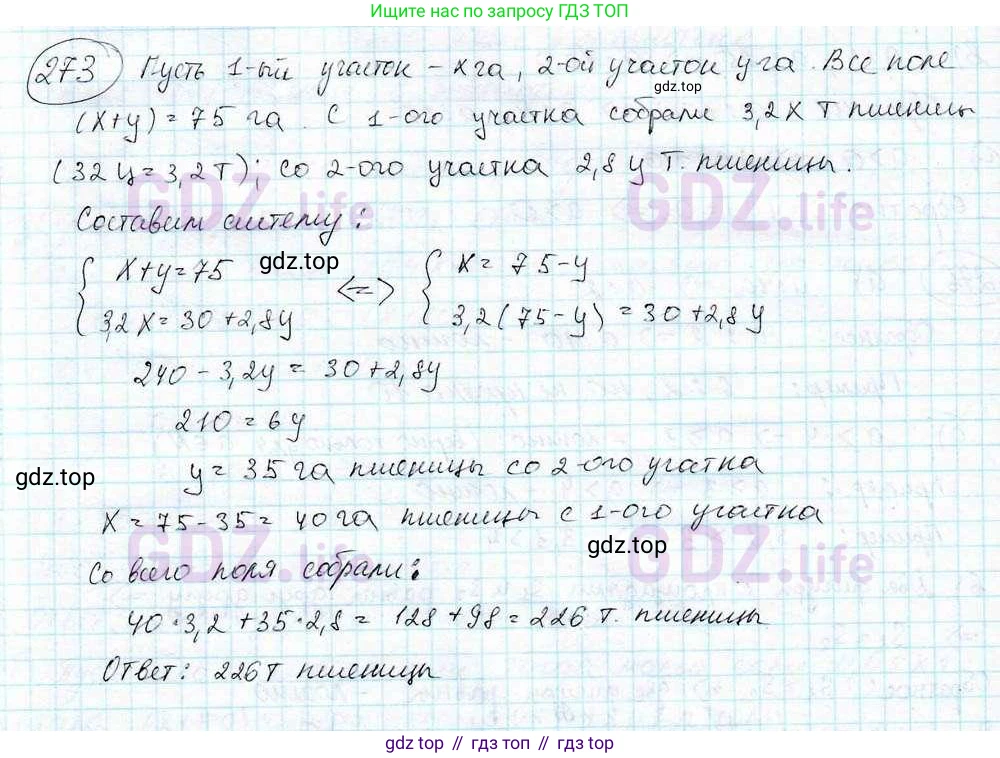 Ищите нас по запросу ГДЗ ТОП
273 Пусть 1-ый участок - x га, 2-ой участок y га. Все поле
gdz.top
(x+y) = 75 га. С 1-ого участка собрали 3,2x т пшеницы
(32 ц = 3,2 т); со 2-ого участка 2,8 y т. пшеницы.
GDZ.life GDZ.life
Составим систему:
{ x+y=75 gdz.top <=> { x = 75-y
3,2x = 30 + 2,8y 3,2(75-y) = 30+2,8y
240 - 3,2y = 30+2,8y
210 = 6y
gdz.top y = 35 га пшеницы со 2-ого участка
x = 75-35 = 40 га пшеницы с 1-ого участка
gdz.top
GDZ.life GDZ.life
Со всего поля собрали:
40·3,2 + 35·2,8 = 128 + 98 = 226 т. пшеницы
Ответ: 226 т пшеницы
gdz top // гдз топ // гдз top